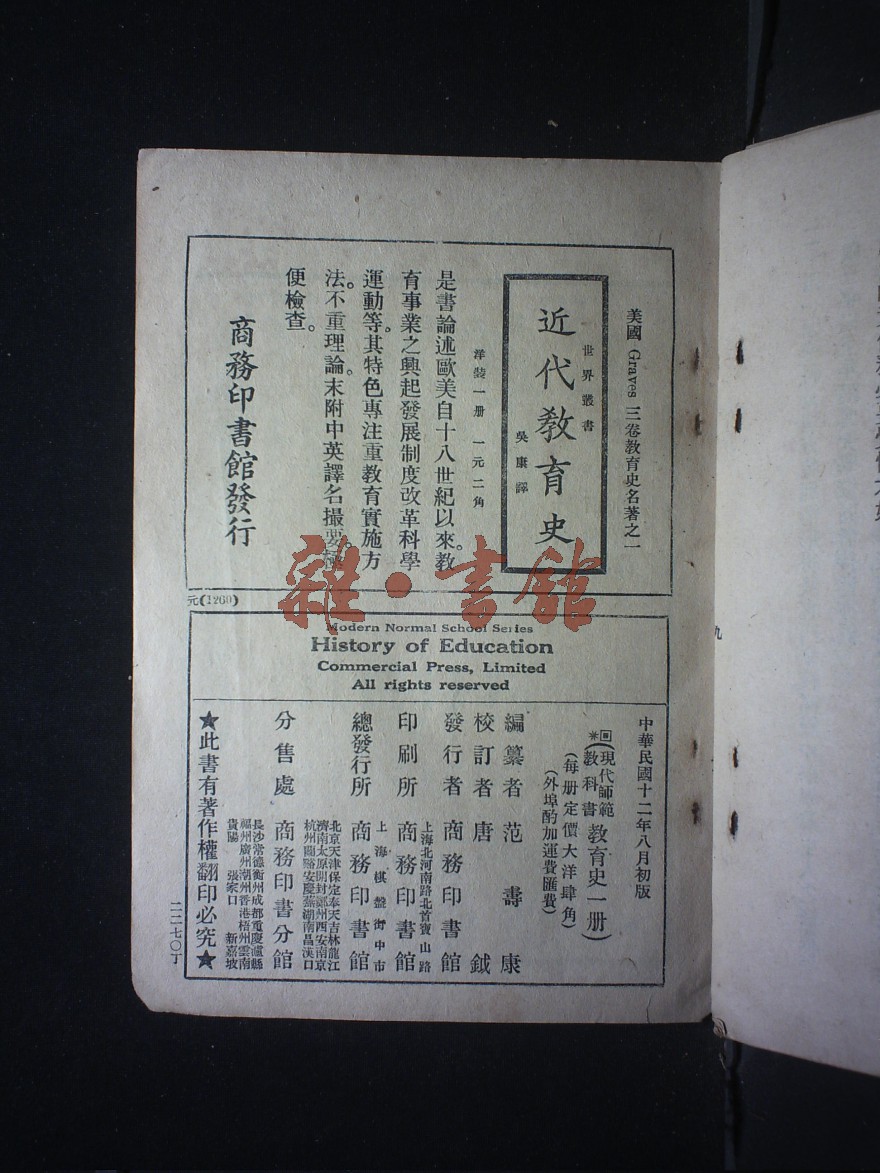 美國 Graves 三卷教育史名著之一
世界叢書
近代教育史
吳康譯
洋裝一册 一元二角
是書論述歐美自十八世紀以來。教
育事業之興起發展制度改革科學
運動等。其特色專注重教育實施方
法。不重理論。末附中英譯名撮要。極
便檢查。
商務印書館發行
元(1260)
雜·書館
Modern Normal School Series
History of Education
Commercial Press, Limited
All rights reserved
中華民國十二年八月初版
(現代師範教科書 教育史一册)
(每册定價大洋肆角)
(外埠酌加運費匯費)
編纂者 范壽康
校訂者 唐鉞
發行者 商務印書館
上海北河南路北首寶山路
印刷所 商務印書館
上海棋盤街中市
總發行所 商務印書館
北京天津保定奉天吉林龍江
濟南太原開封鄭州西安南京
杭州蘭谿安慶蕪湖南昌漢口
分售處 商務印書分館
長沙常德衡州成都重慶瀘縣
福州廣州潮州香港梧州雲南
貴陽 張家口 新嘉坡
★此書有著作權翻印必究★
二二七〇丁
九